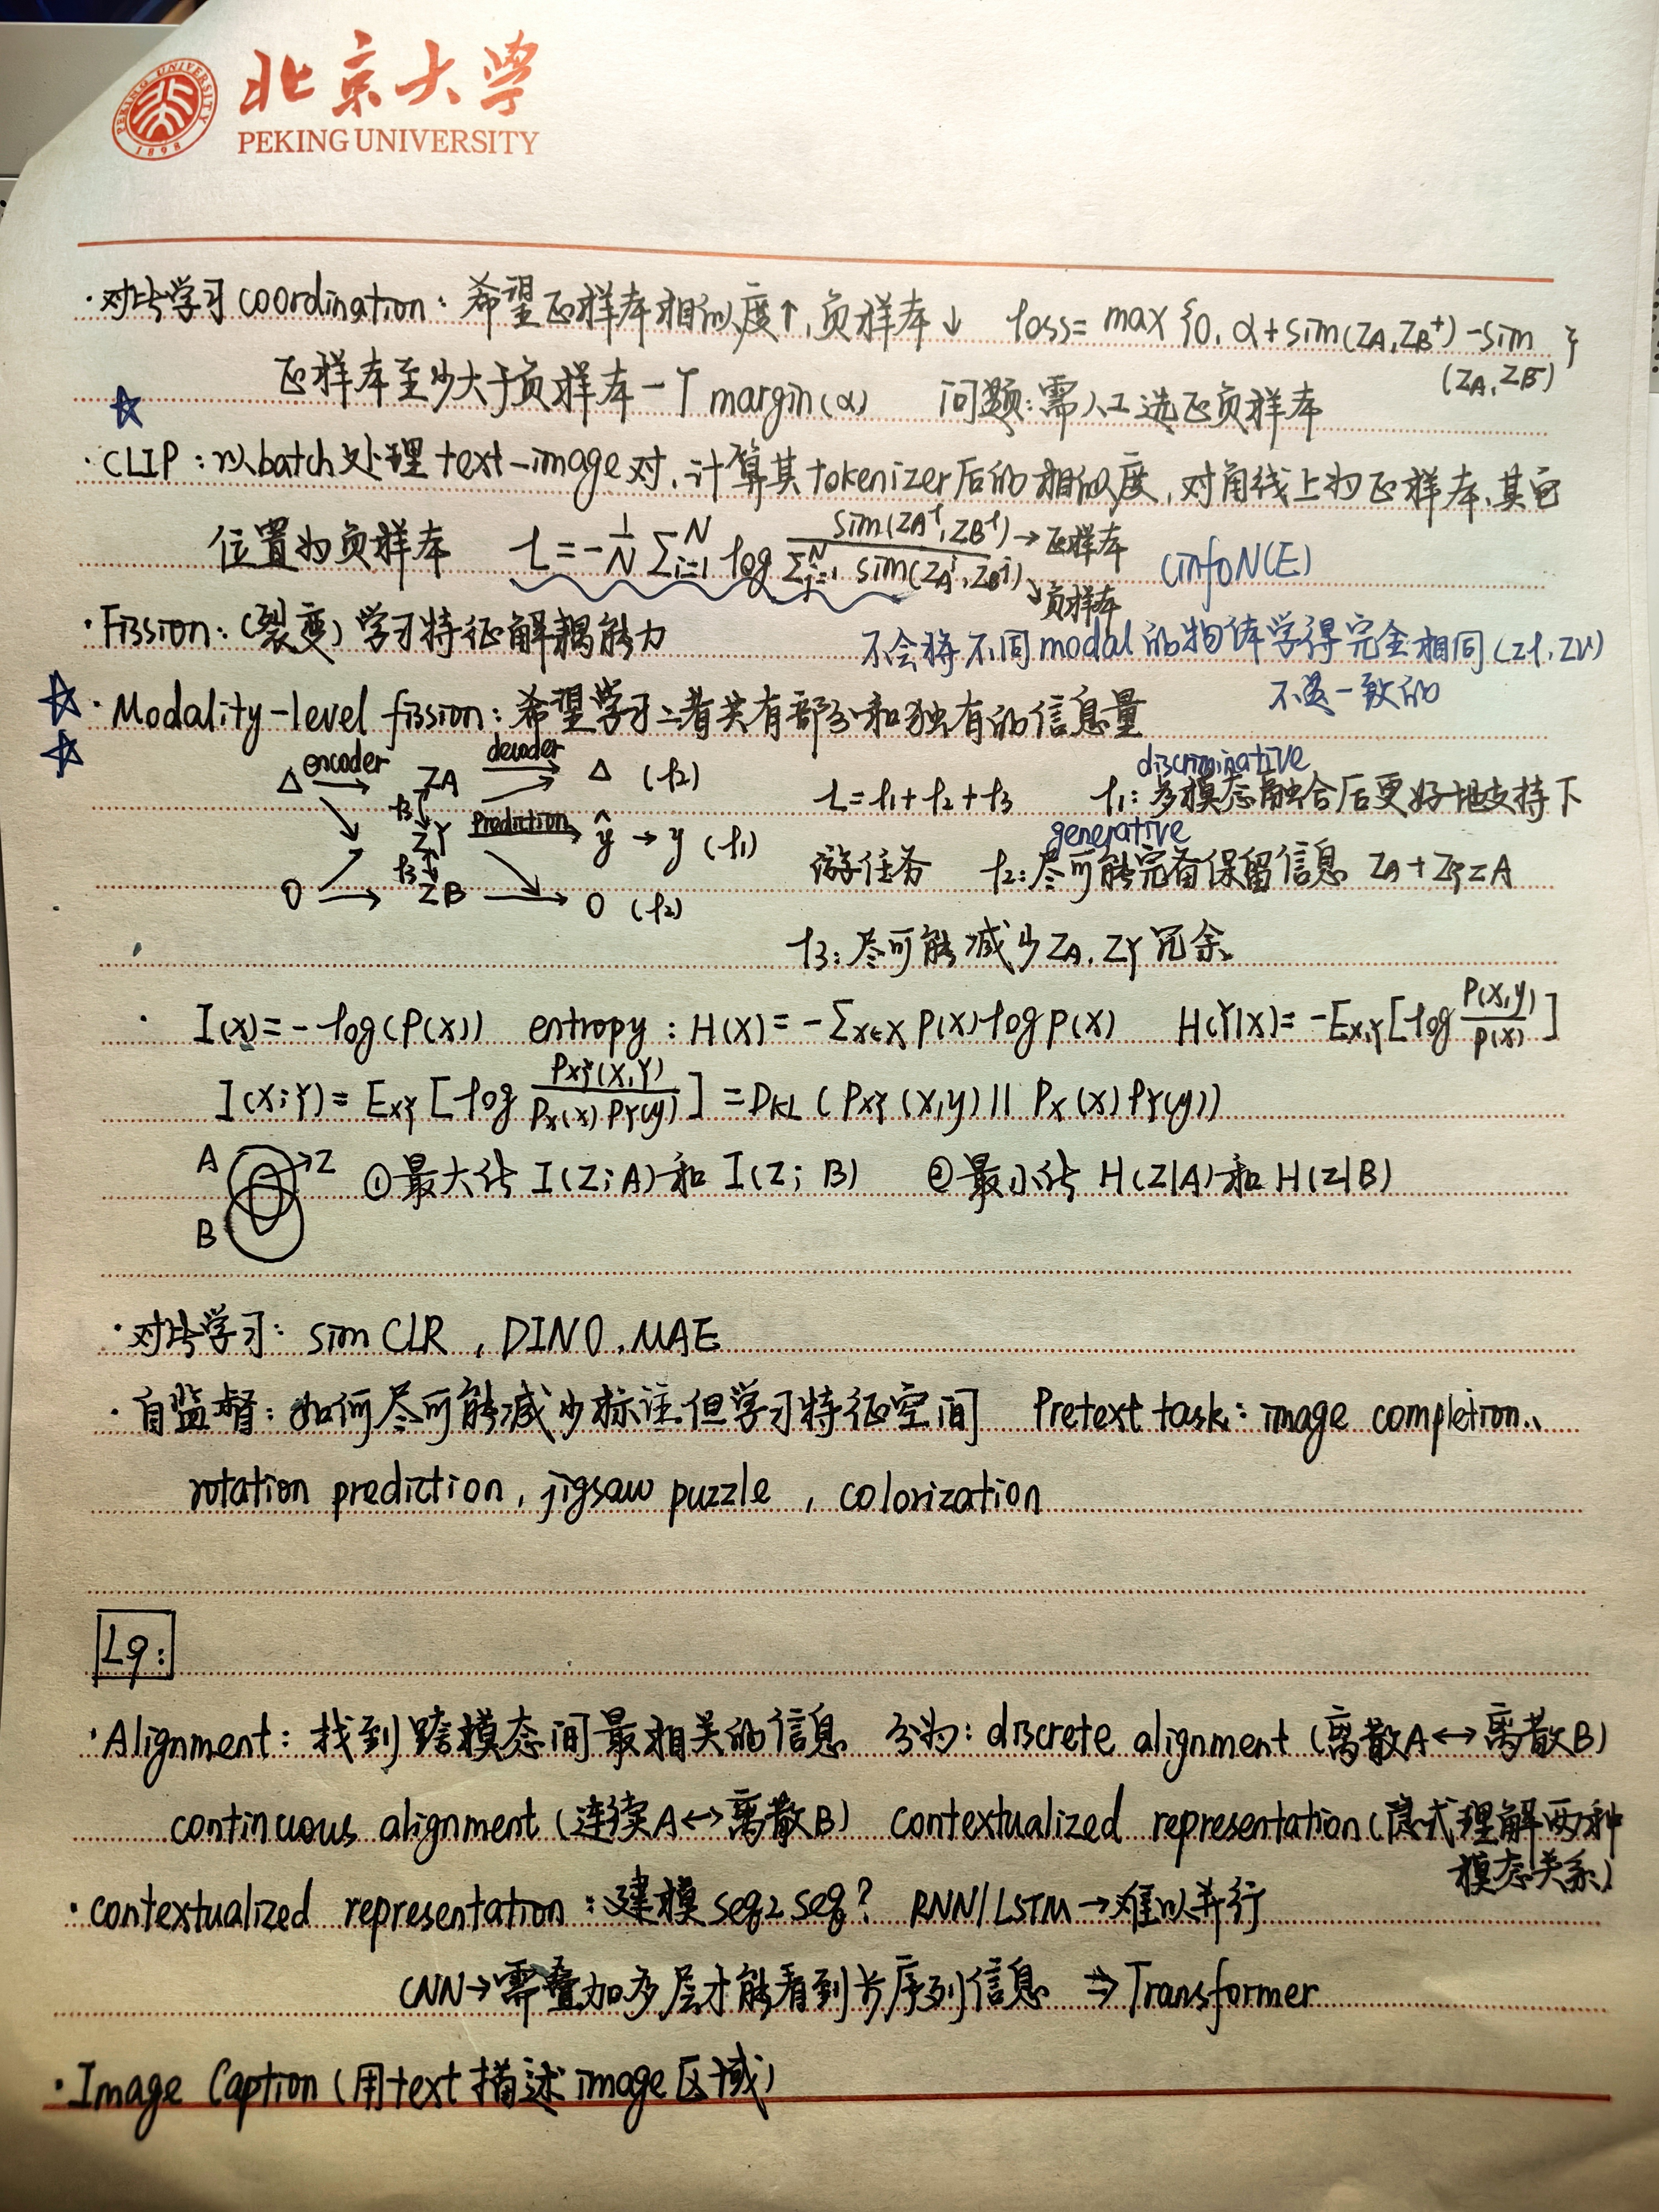 北京大学
PEKING UNIVERSITY
PEKING UNIVERSITY 1898
·对比学习 coordination: 希望正样本相似度↑, 负样本↓ loss= max {0, α+sim(ZA,ZB⁺)-sim(ZA,ZB⁻)}
正样本至少大于负样本一个 margin(α) 问题:需人工选正负样本
☆
·CLIP: 以batch处理text-image对,计算其tokenizer后的相似度,对角线上为正样本,其它
位置为负样本 L=-1/N Σ_{i=1}^N log sim(ZA^i,ZB^i)/Σ_{j=1}^N sim(ZA^i,ZB^j) →正样本 ↘负样本 (infoNCE)
·Fission: (裂变) 学习特征解耦能力 不会将不同modal的物体学得完全相同(Zl,Zv)
不是一致的
☆☆·Modality-level fission: 希望学习二者共有部分和独有的信息量
△ encoder→ ZA decoder→ △ (l2)
l3 ZY prediction→ ŷ→y (l1)
O → l3 ZB → O (l2)
discriminative
L=l1+l2+l3 l1: 多模态融合后更好地支持下
generative
游任务 l2:尽可能完备保留信息 ZA+ZY=A
l3: 尽可能减少ZA,ZY冗余.
· I(X)=-log(P(X)) entropy: H(X)=-Σ_{x∈X} P(X)logp(X) H(Y|X)=-E_{X,Y}[log P(X,y)/P(X)]
I(X;Y)=E_{XY}[log P_{XY}(X,Y)/P_X(x) P_Y(y)]=D_{KL}(P_{XY}(X,y)||P_X(x)P_Y(y))
A B →Z ①最大化 I(Z;A)和 I(Z;B) ②最小化 H(Z|A)和H(Z|B)
·对比学习: simCLR, DINO, MAE
·自监督: 如何尽可能减少标注但学习特征空间 Pretext task: image completion、
rotation prediction, jigsaw puzzle, colorization
L9:
·Alignment: 找到跨模态间最相关的信息 分为: discrete alignment (离散A↔离散B)
continuous alignment (连续A↔离散B) contextualized representation(隐式理解两种
模态关系)
·contextualized representation: 建模 seq2seq? RNN/LSTM→难以并行
CNN→需叠加多层才能看到长序列信息 ⇒Transformer
·Image Caption (用text描述image区域)